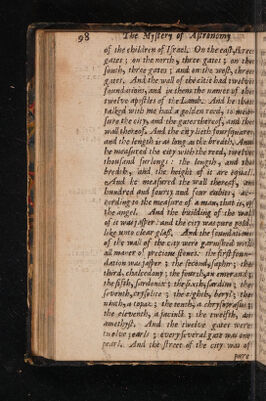 98 The Mystery of Astronomy
of the children of Israel. On the east, three
gates; on the north, three gates; on the
south, three gates; and on the west, three
gates. And the wall of the citie had twelve
foundations, and in them the names of the
twelve apostles of the Lamb. And he that
talked with me had a golden reed, to mea-
sure the city, and the gates thereof, and the
wall thereof. And the city lieth foursquare,
and the length is as long as the bredth. And
he measured the city with the reed, twelve
thousand furlongs: the length, and the
bredth, and the height of it are equall.
And he measured the wall thereof, an
hundred and fourty and four cubits, ac-
cording to the measure of a man, that is, of
the angel. And the building of the wall
of it was jasper: and the city was pure gold,
like unto clear glass. And the foundations
of the wall of the city were garnished with
all maner of precious stones. the first foun-
dation was jasper; the second, saphir; the
third, chalcedony; the fourth, an emerand;
the fifth, sardonix; the sixth, sardius; the
seventh, crysolite; the eighth, beryl; the
ninth, a topaz; the tenth, a chrysoprasus;
the eleventh, a jacinth; the twelfth, an
amethyst. And the twelve gates were
twelve pearls; every several gate was one
pearl. And the street of the city was of
pure